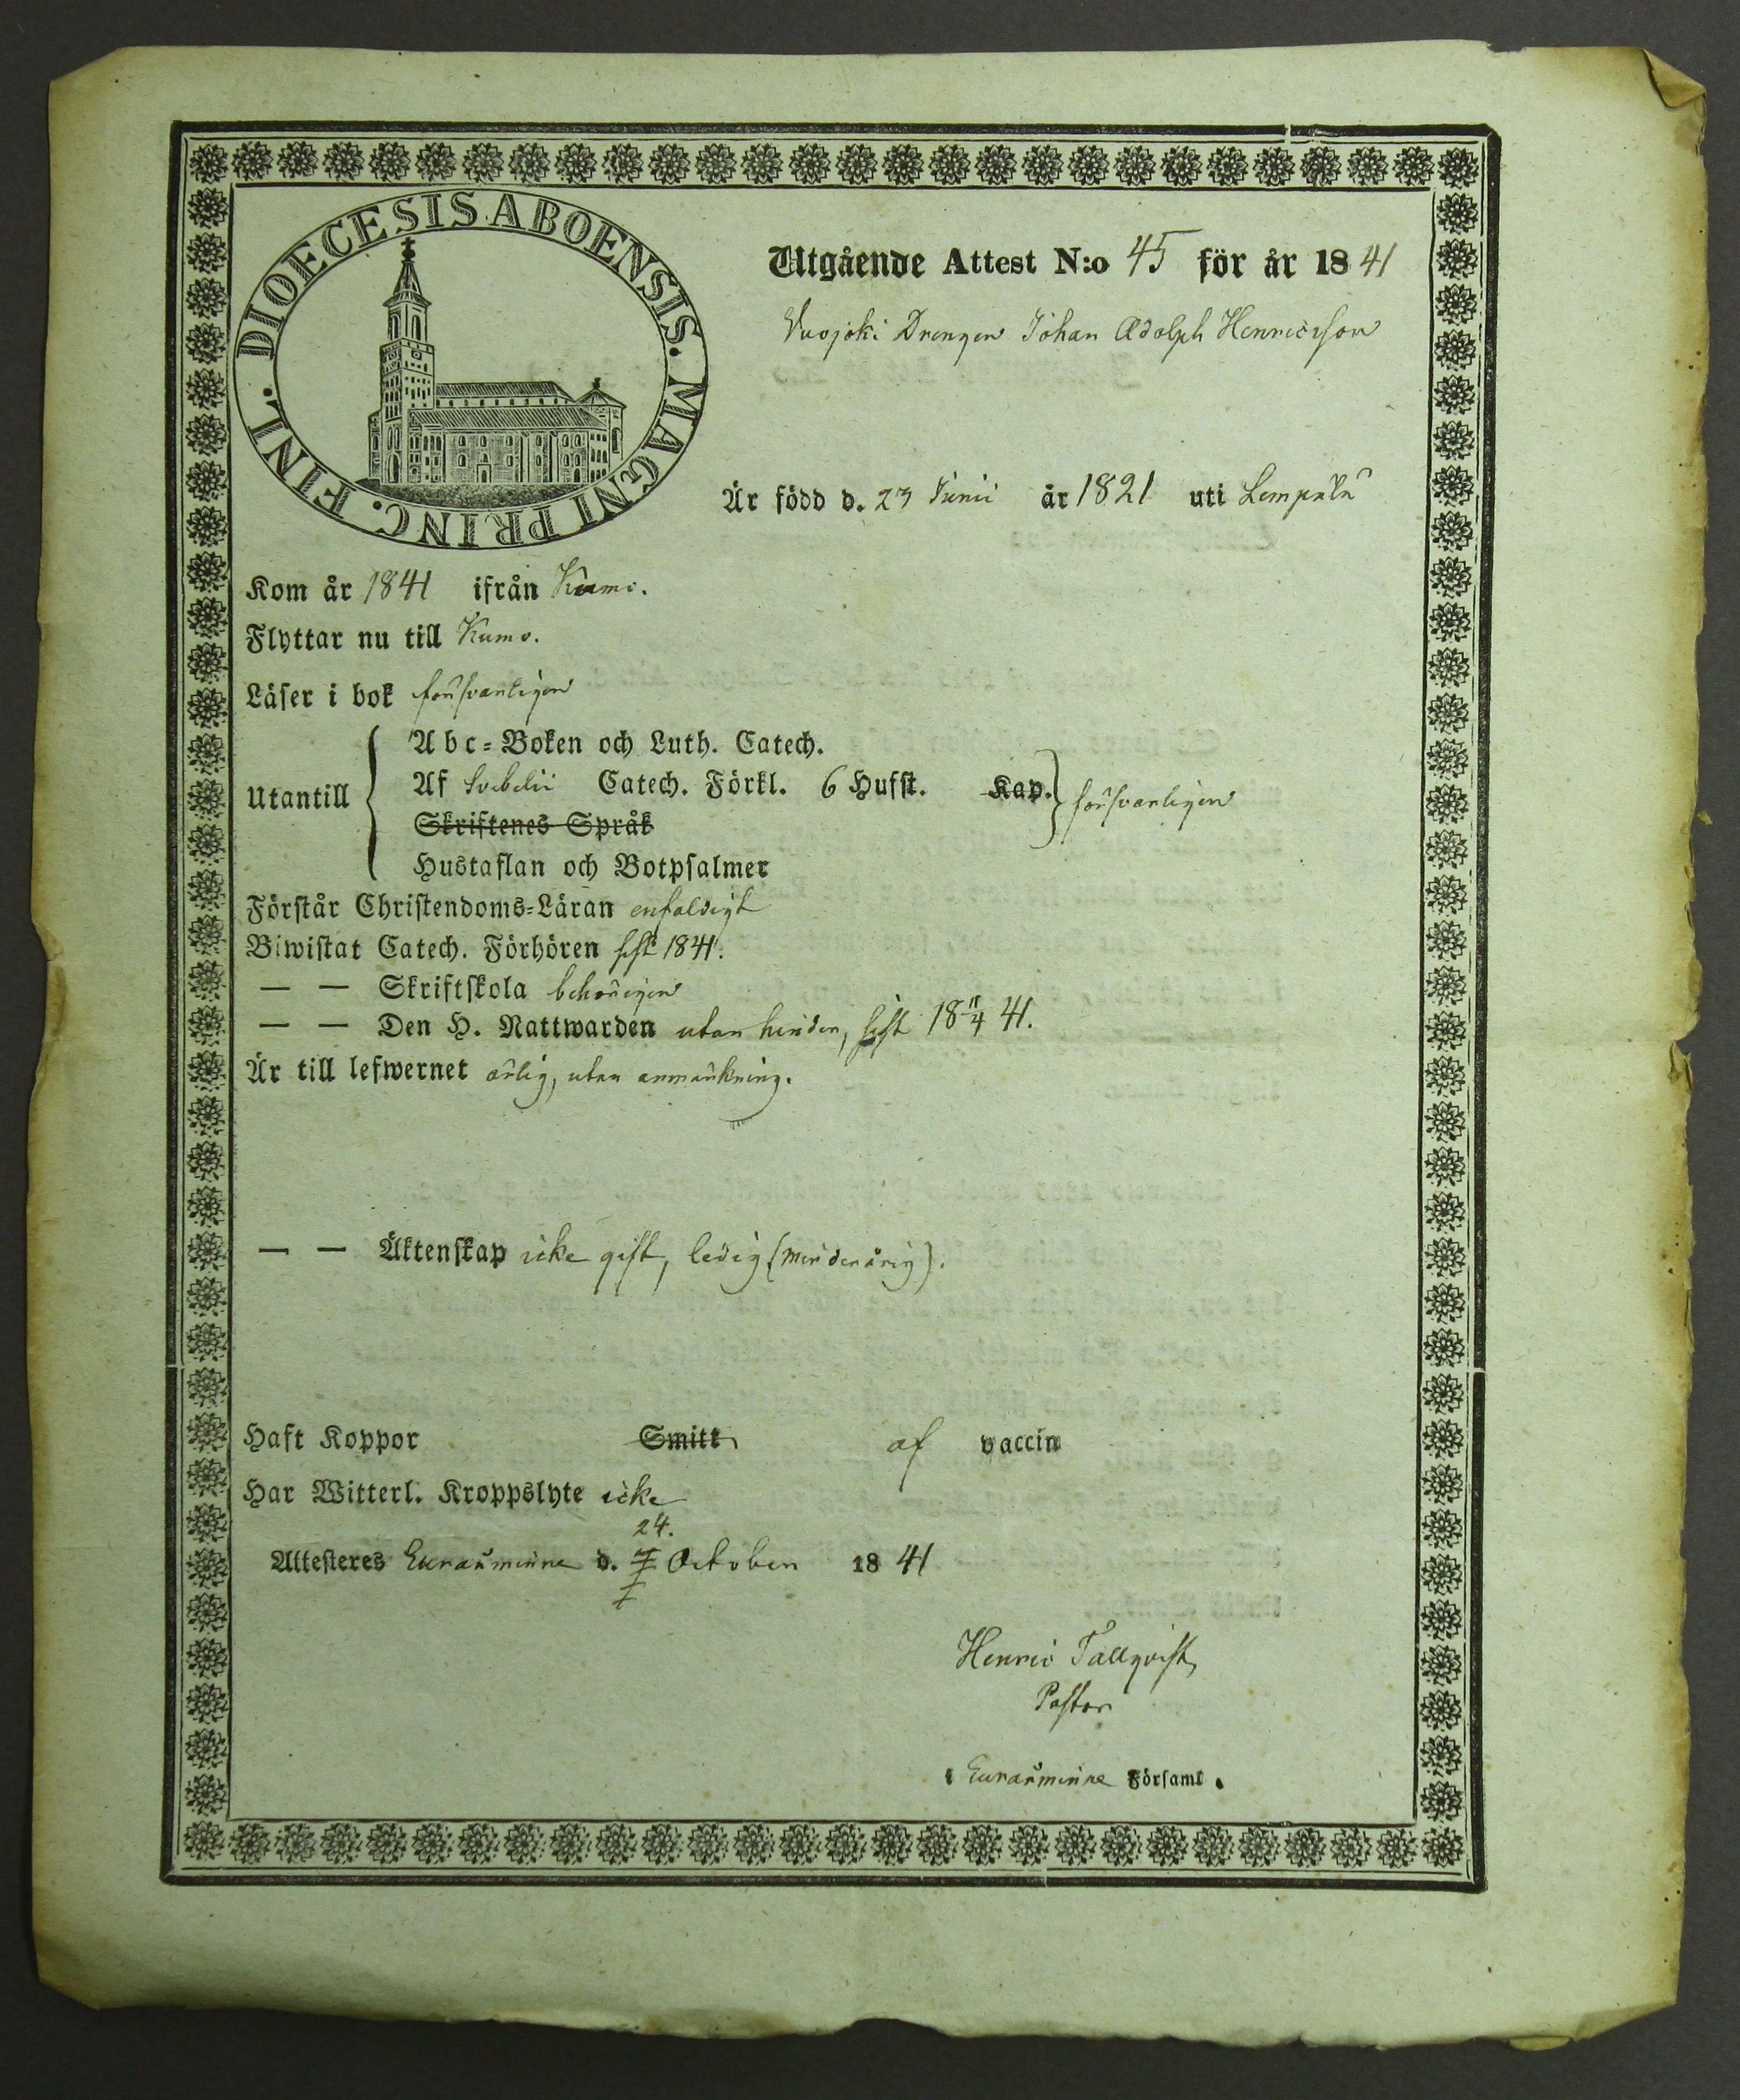 DIOECESIS ABOENSIS. MAGNI PRINC. FINL.
Utgående Attest N:o 45 för år 1841
Vuojoki Drengen Johan Adolph Henricsson
Är född d. 23 Junii år 1821 uti Lempälä
Kom år 1841 ifrån Kumo.
Flyttar nu till Kumo.
Läser i bok försvarligen
Utantill
Abc-Boken och Luth. Catech.
Af Svebelii Catech. Förkl. 6 Hufst. Kap. försvarligen
Skriftenes Språk
Hustaflan och Botpsalmer
Förstår Christendoms-Läran enfaldigt
Biwistat Catech. Förhören sist 1841.
— — Skriftskola behörigen
— — Den H. Nattwarden utan hinder, sist 18 11/4 41.
Är till lefwernet ärlig, utan anmärkning.
— — Äktenskap icke gift, ledig (minderårig).
Haft Koppor Smitt af vaccin
Har Witterl. Kroppslyte icke
24.
Attesteres Euraåminne d. October 1841
Henric Tallqvist
Pastor
i Euraåminne Församl.